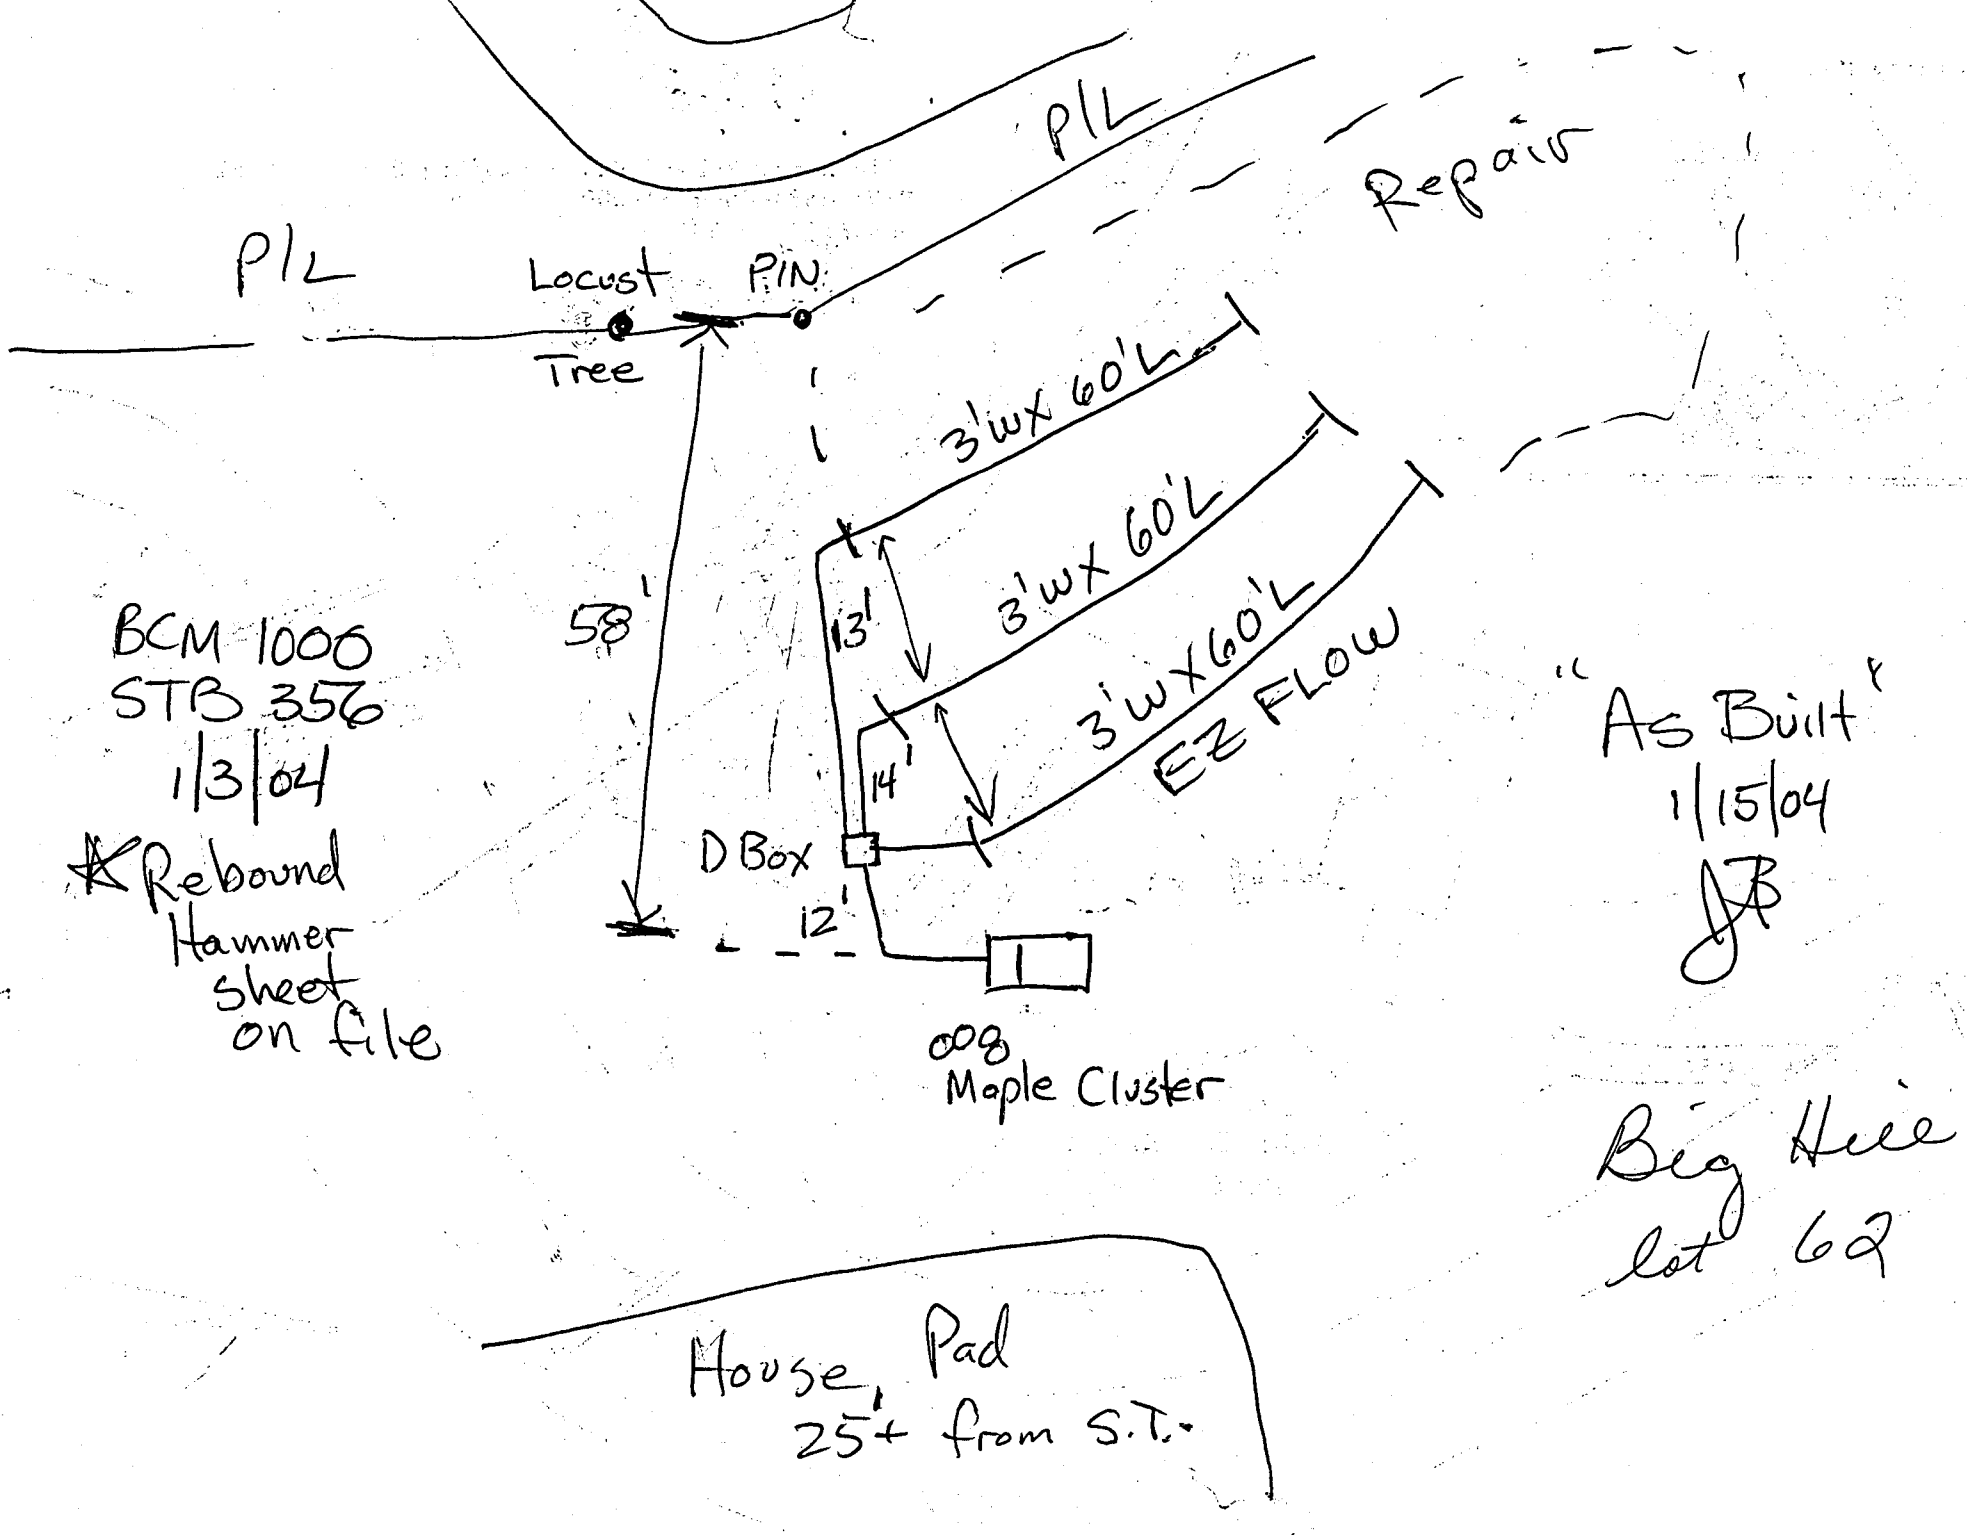 P/L
Repair
P/L
Locust
Tree
PIN
3'W X 60'L
3'W X 60'L
3'W X 60'L
EZ FLOW
13'
14'
58'
BCM 1000
STB 356
1/3/04
Rebound
Hammer
sheet
on file
D Box
12'
"As Built"
1/15/04
JB
Maple Cluster
Big Hill
lot 62
House Pad
25'+ from S.T.